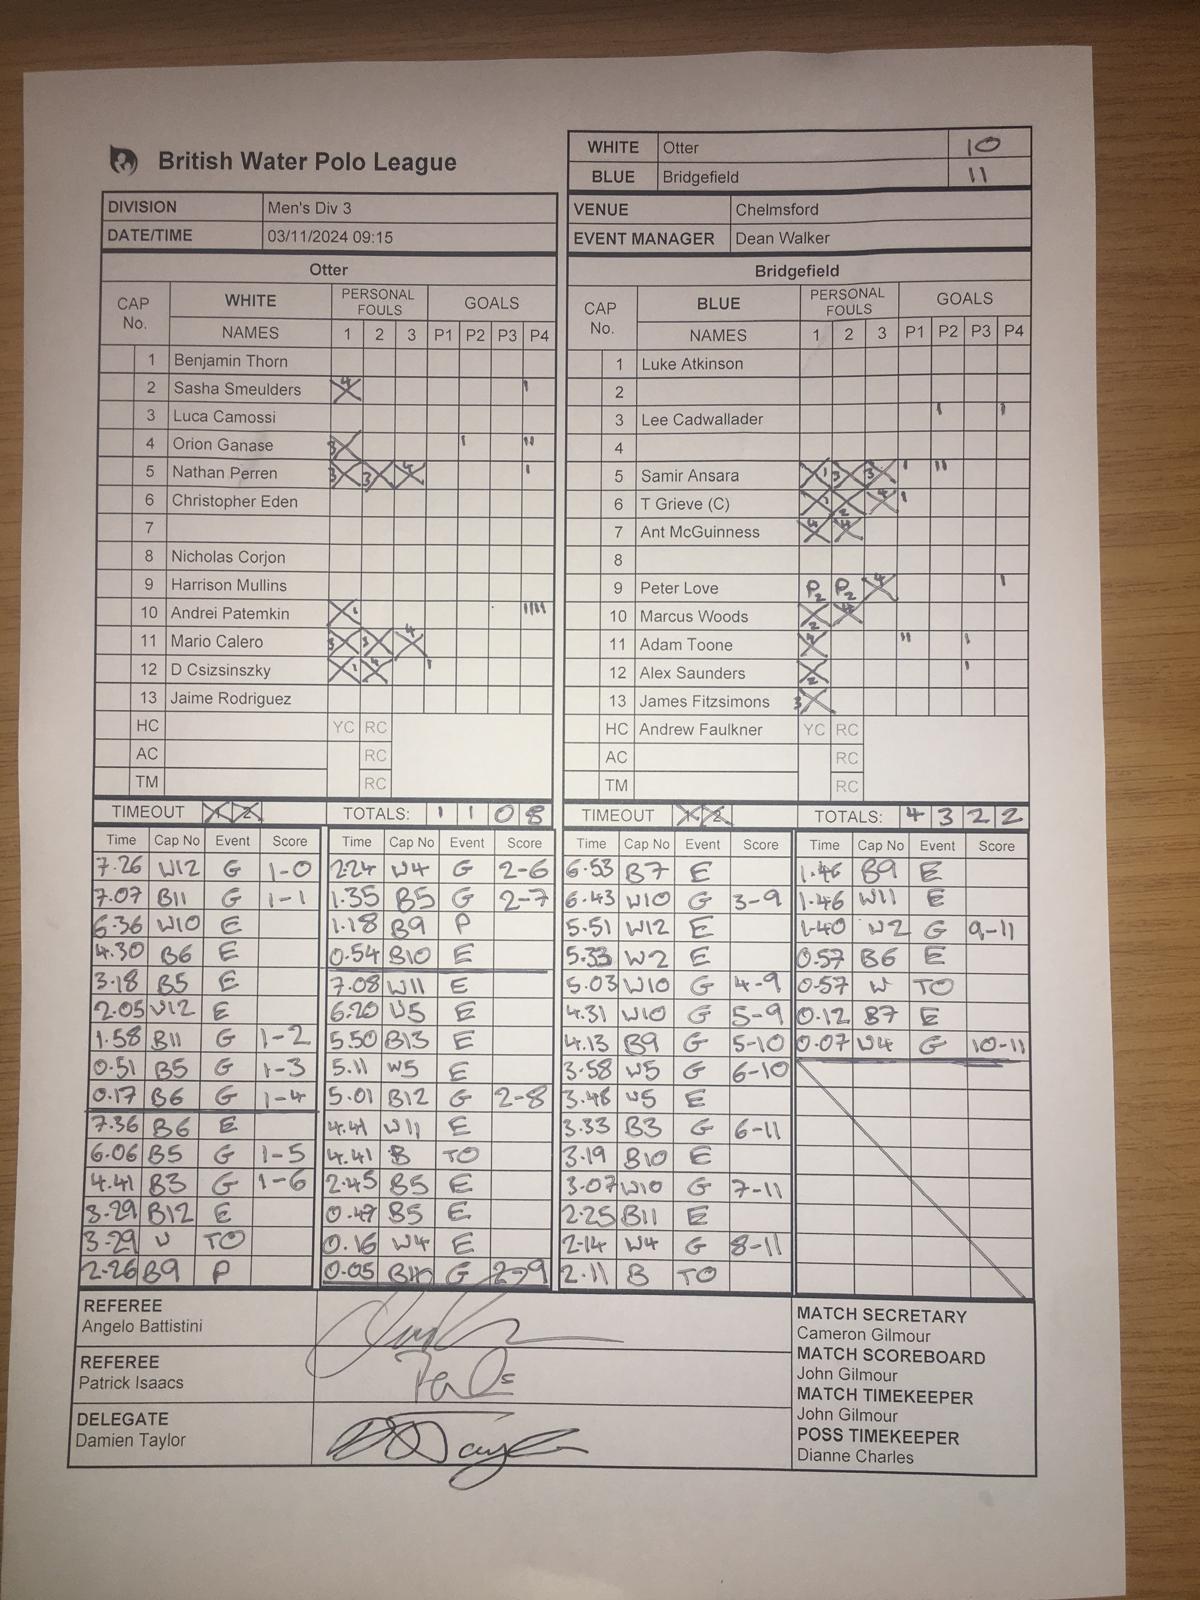 British Water Polo League
WHITE Otter 10
BLUE Bridgefield 11
DIVISION Men's Div 3
DATE/TIME 03/11/2024 09:15
VENUE Chelmsford
EVENT MANAGER Dean Walker
Otter
CAP No. WHITE PERSONAL FOULS GOALS
NAMES 1 2 3 P1 P2 P3 P4
1 Benjamin Thorn
2 Sasha Smeulders 4 I
3 Luca Camossi
4 Orion Ganase 3 I II
5 Nathan Perren 3 3 4 I
6 Christopher Eden
7
8 Nicholas Corjon
9 Harrison Mullins
10 Andrei Patemkin 1 IIII
11 Mario Calero 3 3 4
12 D Csizsinszky 1 4 I
13 Jaime Rodriguez
HC YC RC
AC RC
TM RC
TIMEOUT 1 2 TOTALS: 1 1 0 8
Bridgefield
CAP No. BLUE PERSONAL FOULS GOALS
NAMES 1 2 3 P1 P2 P3 P4
1 Luke Atkinson
2
3 Lee Cadwallader I I
4
5 Samir Ansara 1 3 3 I II
6 T Grieve (C) 1 2 4 I
7 Ant McGuinness 4 4
8
9 Peter Love P2 P2 4 I
10 Marcus Woods 2 4
11 Adam Toone 4 II I
12 Alex Saunders 2 I
13 James Fitzsimons 3
HC Andrew Faulkner YC RC
AC RC
TM RC
TIMEOUT 1 2 TOTALS: 4 3 2 2
Time Cap No Event Score
7.26 W12 G 1-0
7.07 B11 G 1-1
6.36 W10 E
4.30 B6 E
3.18 B5 E
2.05 W12 E
1.58 B11 G 1-2
0.51 B5 G 1-3
0.17 B6 G 1-4
7.36 B6 E
6.06 B5 G 1-5
4.41 B3 G 1-6
3.29 B12 E
3.29 W TO
2.26 B9 P
Time Cap No Event Score
2.24 W4 G 2-6
1.35 B5 G 2-7
1.18 B9 P
0.54 B10 E
7.08 W11 E
6.20 W5 E
5.50 B13 E
5.11 W5 E
5.01 B12 G 2-8
4.41 W11 E
4.41 B TO
2.45 B5 E
0.47 B5 E
0.16 W4 E
0.05 G 2-9
Time Cap No Event Score
6.53 B7 E
6.43 W10 G 3-9
5.51 W12 E
5.33 W2 E
5.03 W10 G 4-9
4.31 W10 G 5-9
4.13 B9 G 5-10
3.58 W5 G 6-10
3.48 W5 E
3.33 B3 G 6-11
3.19 B10 E
3.07 W10 G 7-11
2.25 B11 E
2.14 W4 G 8-11
2.11 B TO
Time Cap No Event Score
1.46 B9 E
1.46 W11 E
1.40 W2 G 9-11
0.57 B6 E
0.57 W TO
0.12 B7 E
0.07 W4 G 10-11
REFEREE
Angelo Battistini
REFEREE
Patrick Isaacs
DELEGATE
Damien Taylor
MATCH SECRETARY
Cameron Gilmour
MATCH SCOREBOARD
John Gilmour
MATCH TIMEKEEPER
John Gilmour
POSS TIMEKEEPER
Dianne Charles